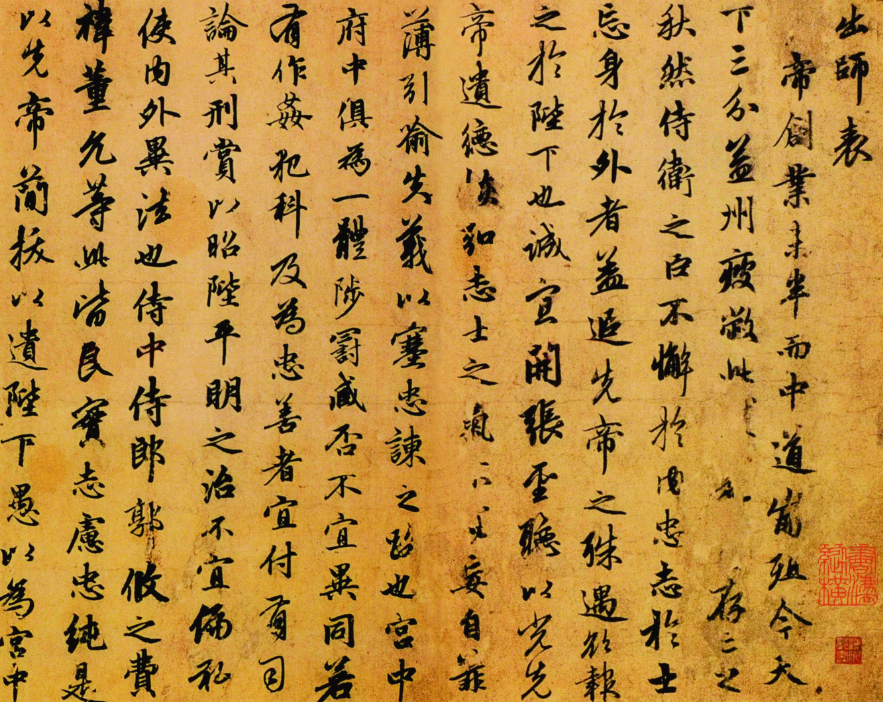 出師表
帝創業未半而中道崩殂今天
下三分益州疲敝此存亡之
秋然侍衛之臣不懈於內忠志於士
忘身於外者蓋追先帝之殊遇欲報
之於陛下也誠宜開張聖聽以光先
帝遺德恢弘志士之氣不宜妄自菲
薄引喻失義以塞忠諫之路也宮中
府中俱為一體陟罰臧否不宜異同若
有作姦犯科及為忠善者宜付有司
論其刑賞以昭陛平明之治不宜偏私
使內外異法也侍中侍郎郭攸之費
禕董允等此皆良實志慮忠純是
以先帝簡拔以遺陛下愚以為宮中